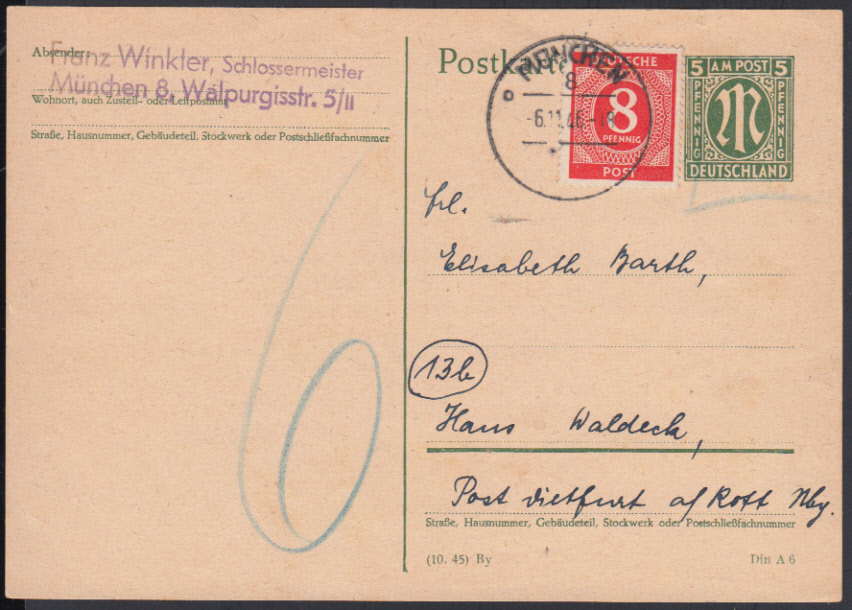 Absender:
Franz Winkler, Schlossermeister
München 8, Walpurgisstr. 5/II
Wohnort, auch Zustell- oder Leitpostamt
Straße, Hausnummer, Gebäudeteil, Stockwerk oder Postschließfachnummer
6
Postkarte
MÜNCHEN
8
-6.11.46-18
DEUTSCHE
8
PFENNIG
POST
5 AM POST 5
PFENNIG
M
PFENNIG
DEUTSCHLAND
Frl.
Elisabeth Barth,
13b
Haus Waldeck,
Post Dietfurt a/Rott Nby.
Straße, Hausnummer, Gebäudeteil, Stockwerk oder Postschließfachnummer
(10. 45) By
Din A 6